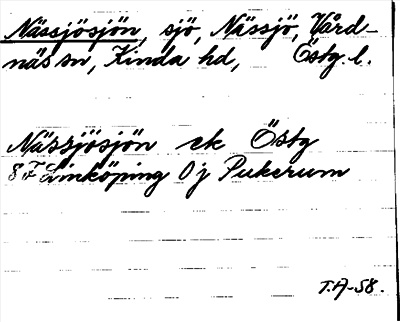 Nässjösjön, sjö, Nässjö, Vård-
näs sn, Kinda hd, Östg. l.
Nässjösjön ek Östg
8 F Linköping 0j Pukerum
T.A-58.